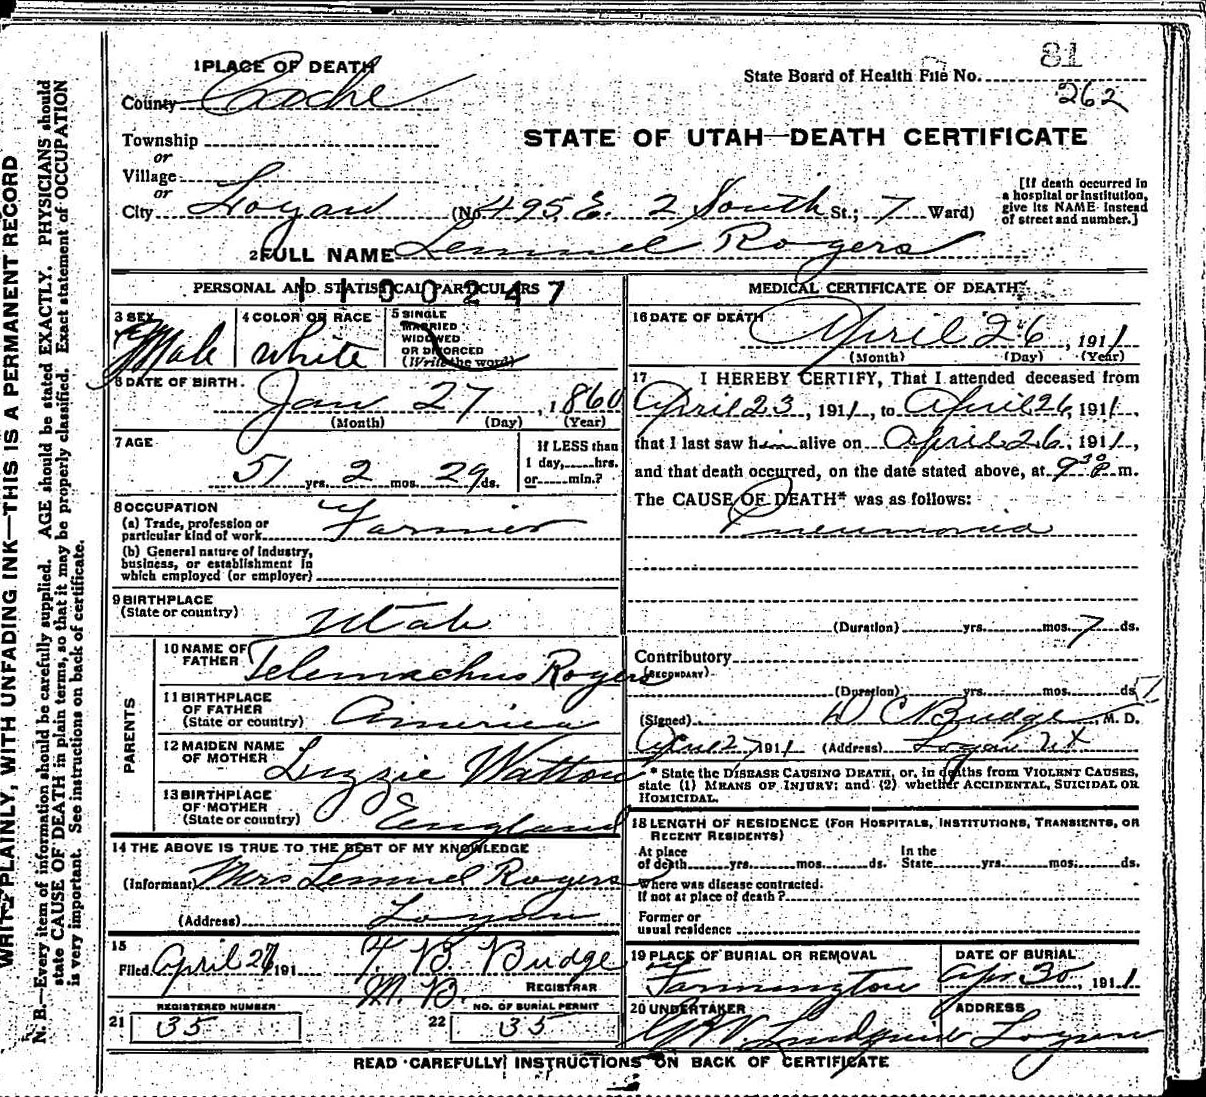 WRITE PLAINLY, WITH UNFADING INK—THIS IS A PERMANENT RECORD
N. B.—Every item of information should be carefully supplied. AGE should be stated EXACTLY. PHYSICIANS should
state CAUSE OF DEATH in plain terms, so that it may be properly classified. Exact statement of OCCUPATION
is very important. See instructions on back of certificate.
1 PLACE OF DEATH
County Cache
Township
or
Village
or
City Logan (No. 495 E. 2 South St.; 7 Ward)
State Board of Health File No. 81
262
STATE OF UTAH—DEATH CERTIFICATE
[If death occurred in
a hospital or institution,
give its NAME instead
of street and number.]
2 FULL NAME Lemuel Rogers
PERSONAL AND STATISTICAL PARTICULARS
1100247
3 SEX Male
4 COLOR OR RACE white
5 SINGLE
MARRIED
WIDOWED
OR DIVORCED
(Write the word)
6 DATE OF BIRTH.
Jan 27, 1860
(Month) (Day) (Year)
7 AGE
51 yrs. 2 mos. 29 ds.
If LESS than
1 day, hrs.
or min.?
8 OCCUPATION
(a) Trade, profession or
particular kind of work Farmer
(b) General nature of industry,
business, or establishment in
which employed (or employer)
9 BIRTHPLACE
(State or country) Utah
PARENTS
10 NAME OF
FATHER Telemachus Rogers
11 BIRTHPLACE
OF FATHER
(State or country) America
12 MAIDEN NAME
OF MOTHER Lizzie Watton
13 BIRTHPLACE
OF MOTHER
(State or country) England
14 THE ABOVE IS TRUE TO THE BEST OF MY KNOWLEDGE
(Informant) Mrs Lemuel Rogers
(Address) Logan
15
Filed April 27 191 T. B. Budge
M. D. REGISTRAR
REGISTERED NUMBER
21 35
NO. OF BURIAL PERMIT
22 35
MEDICAL CERTIFICATE OF DEATH
16 DATE OF DEATH
April 26, 1911
(Month) (Day) (Year)
17 I HEREBY CERTIFY, That I attended deceased from
April 23, 1911, to April 26, 1911,
that I last saw him alive on April 26, 1911,
and that death occurred, on the date stated above, at 9 30 P. m.
The CAUSE OF DEATH* was as follows:
Pneumonia
(Duration) yrs. mos. 7 ds.
Contributory
(SECONDARY)
(Duration) yrs. mos. ds.
(Signed) D C Budge, M. D.
April 27, 1911 (Address) Logan Ut
* State the DISEASE CAUSING DEATH, or, in deaths from VIOLENT CAUSES,
state (1) MEANS OF INJURY; and (2) whether ACCIDENTAL, SUICIDAL OR
HOMICIDAL.
18 LENGTH OF RESIDENCE (FOR HOSPITALS, INSTITUTIONS, TRANSIENTS, OR
RECENT RESIDENTS)
At place
of death yrs. mos. ds.
In the
State yrs. mos. ds.
Where was disease contracted.
If not at place of death?
Former or
usual residence
19 PLACE OF BURIAL OR REMOVAL
Farmington
DATE OF BURIAL
Apr 30, 1911
20 UNDERTAKER
Lindquist
ADDRESS
Logan
READ CAREFULLY INSTRUCTIONS ON BACK OF CERTIFICATE